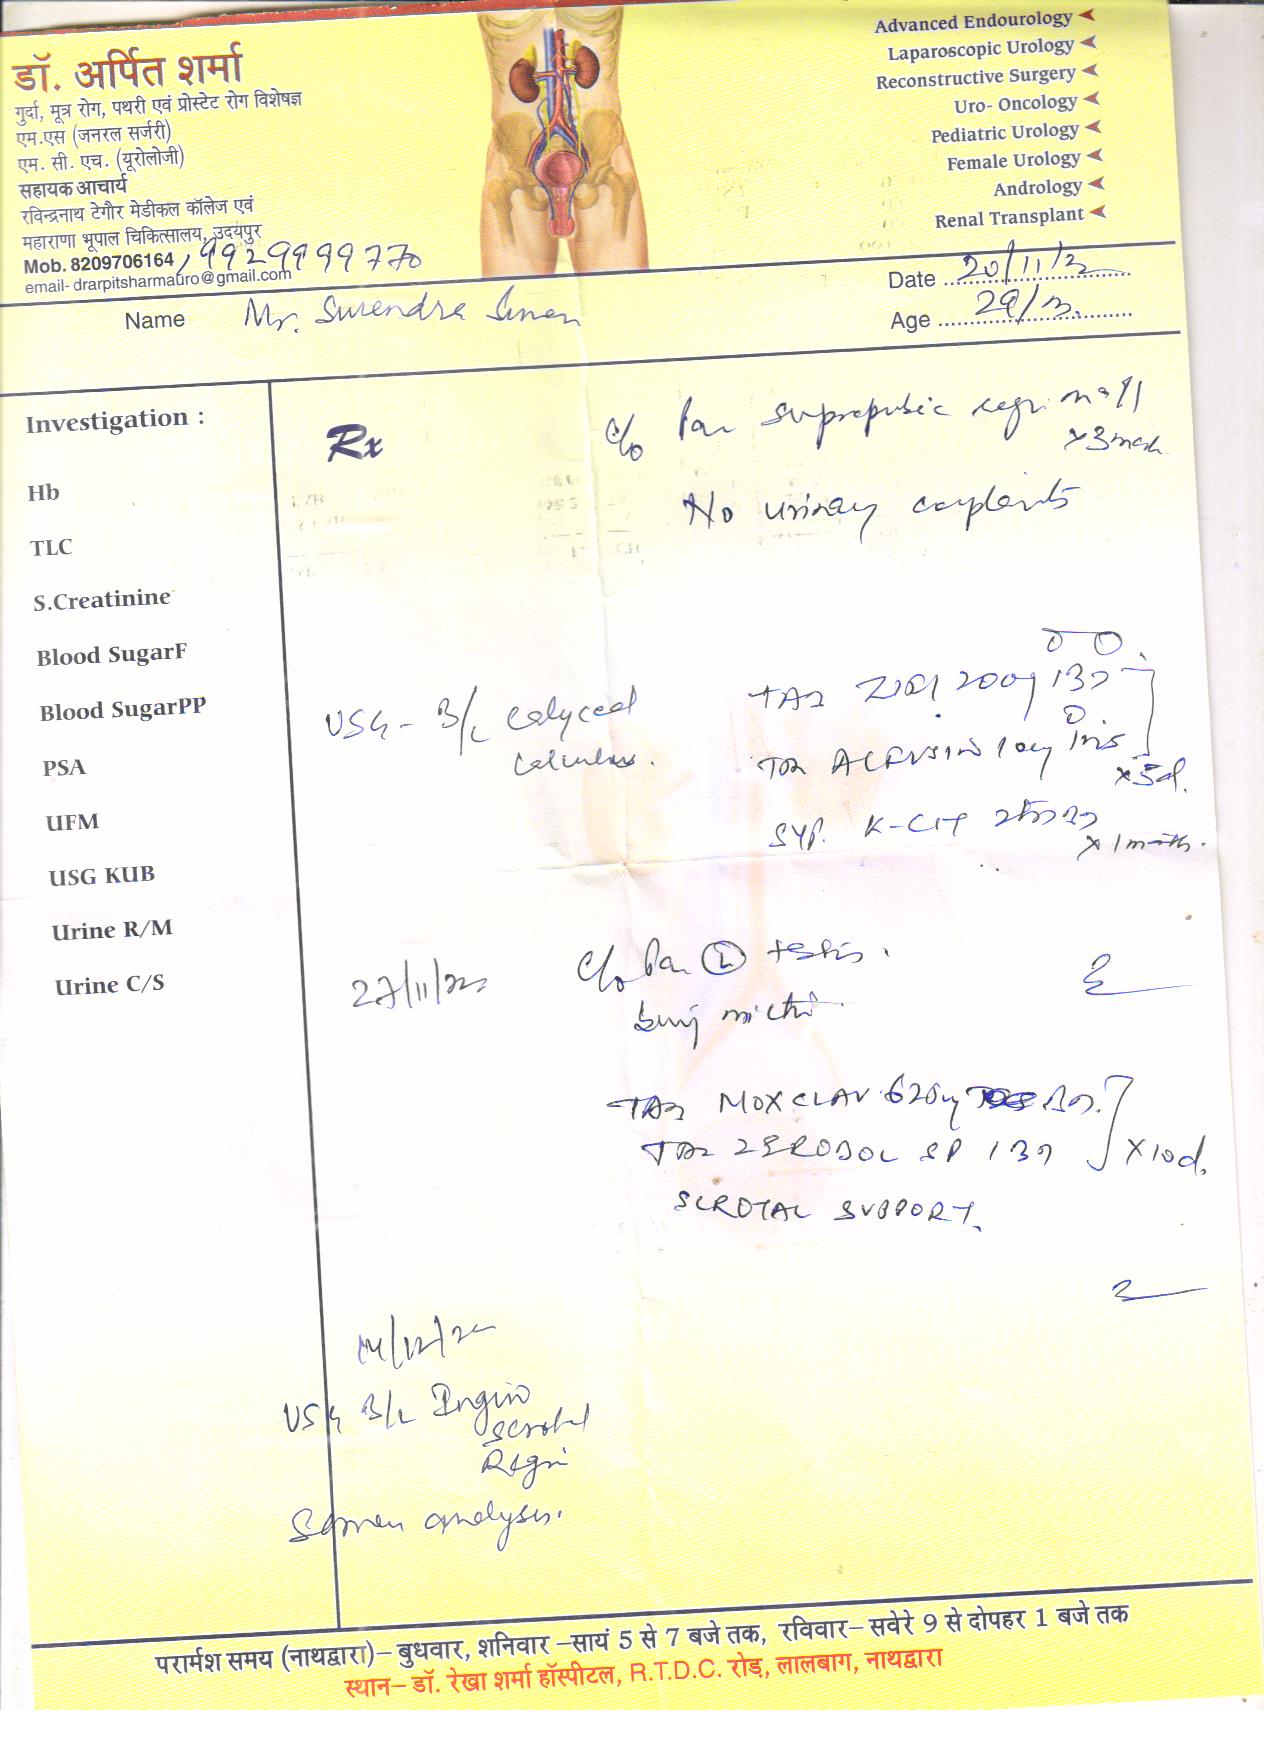 डॉ. अर्पित शर्मा
गुर्दा, मूत्र रोग, पथरी एवं प्रोस्टेट रोग विशेषज्ञ
एम.एस (जनरल सर्जरी)
एम. सी. एच. (यूरोलोजी)
सहायक आचार्य
रविन्द्रनाथ टेगौर मेडीकल कॉलेज एवं
महाराणा भूपाल चिकित्सालय, उदयपुर
Mob. 8209706164, 9929999770
email- drarpitsharmauro@gmail.com
Advanced Endourology
Laparoscopic Urology
Reconstructive Surgery
Uro- Oncology
Pediatric Urology
Female Urology
Andrology
Renal Transplant
Date 20/11/2
Name Mr. Surendra
Age 29/m.
Investigation :
Hb
TLC
S.Creatinine
Blood SugarF
Blood SugarPP
PSA
UFM
USG KUB
Urine R/M
Urine C/S
Rx
C/o Pain suprapubic region
x3
No urinary complaints
USG - B/L calyceal
calculus.
TAB 200mg
TAB 10mg
x5d.
SYP. K-CIT
x 1 month.
27/11/22
C/o Pain L testis.
TAB MOXCLAV 625mg
TAB ZERODOL SP
x10d.
SCROTAL SUPPORT.
USG B/L Inguino
scrotal
Region
Semen analysis.
परार्मश समय (नाथद्वारा)– बुधवार, शनिवार –सायं 5 से 7 बजे तक, रविवार– सवेरे 9 से दोपहर 1 बजे तक
स्थान– डॉ. रेखा शर्मा हॉस्पीटल, R.T.D.C. रोड़, लालबाग, नाथद्वारा